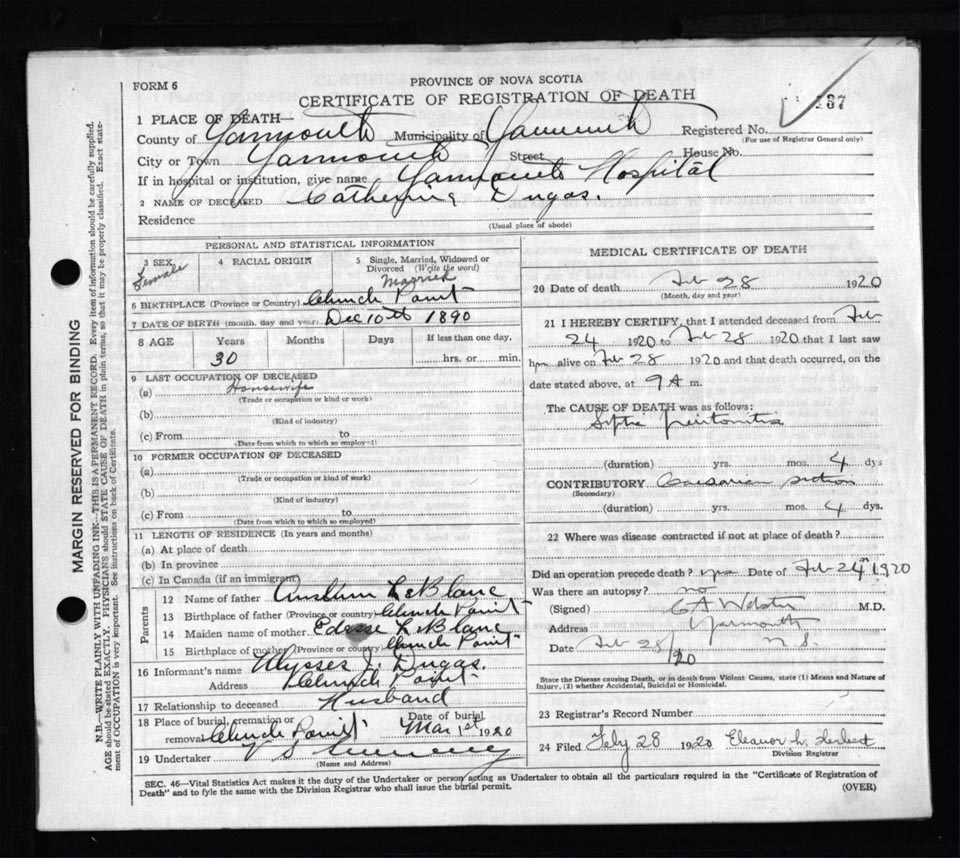 FORM 6
PROVINCE OF NOVA SCOTIA
CERTIFICATE OF REGISTRATION OF DEATH
187
1 PLACE OF DEATH—
County of Yarmouth Municipality of Yarmouth Registered No.
(For use of Registrar General only)
City or Town Yarmouth Street House No.
If in hospital or institution, give name Yarmouth Hospital
2 NAME OF DECEASED Catherine Dugas.
Residence
(Usual place of abode)
PERSONAL AND STATISTICAL INFORMATION
3 SEX Female
4 RACIAL ORIGIN
5 Single, Married, Widowed or Divorced (Write the word) Married
6 BIRTHPLACE (Province or Country) Church Point
7 DATE OF BIRTH (month, day and year) Dec 10th 1890
8 AGE Years Months Days If less than one day,
30 hrs. or min.
9 LAST OCCUPATION OF DECEASED
(a) Housewife
(Trade or occupation or kind of work)
(b)
(Kind of industry)
(c) From to
(Date from which to which so employed)
10 FORMER OCCUPATION OF DECEASED
(a)
(Trade or occupation or kind of work)
(b)
(Kind of industry)
(c) From to
(Date from which to which so employed)
11 LENGTH OF RESIDENCE (In years and months)
(a) At place of death
(b) In province
(c) In Canada (if an immigrant)
Parents
12 Name of father LeBlanc
13 Birthplace of father (Province or country) Church Point
14 Maiden name of mother Edesse LeBlanc
15 Birthplace of mother (Province or country) Church Point
16 Informant's name Ulysses J. Dugas.
Address Church Point
17 Relationship to deceased Husband
18 Place of burial, cremation or removal Church Point Date of burial Mar 1st 1920
19 Undertaker V S
(Name and Address)
MEDICAL CERTIFICATE OF DEATH
20 Date of death Feb 28 1920
(Month, day and year)
21 I HEREBY CERTIFY, that I attended deceased from Feb
24 1920 to Feb 28 1920 that I last saw
her alive on Feb 28 1920 and that death occurred, on the
date stated above, at 9 A m.
The CAUSE OF DEATH was as follows:
Septic peritonitis
(duration) yrs. mos. 4 dys
CONTRIBUTORY Caesarian section
(Secondary)
(duration) yrs. mos. 4 dys.
22 Where was disease contracted if not at place of death?
Did an operation precede death? yes Date of Feb 24th 1920
Was there an autopsy? no
(Signed) C A Webster M.D.
Address Yarmouth
Date Feb 28/20 N. S.
State the Disease causing Death, or in death from Violent Causes, state (1) Means and Nature of
Injury, (2) whether Accidental, Suicidal or Homicidal.
23 Registrar's Record Number
24 Filed Feby 28 1920 Eleanor L. Herbert
Division Registrar
SEC. 46—Vital Statistics Act makes it the duty of the Undertaker or person acting as Undertaker to obtain all the particulars required in the "Certificate of Registration of
Death" and to fyle the same with the Division Registrar who shall issue the burial permit.
(OVER)
MARGIN RESERVED FOR BINDING
N.B.—WRITE PLAINLY WITH UNFADING INK—THIS IS A PERMANENT RECORD. Every item of information should be carefully supplied.
AGE should be stated EXACTLY. PHYSICIANS should STATE CAUSE OF DEATH in plain terms, so that it may be properly classified. Exact state-
ment of OCCUPATION is very important. See instructions on back of Certificate.